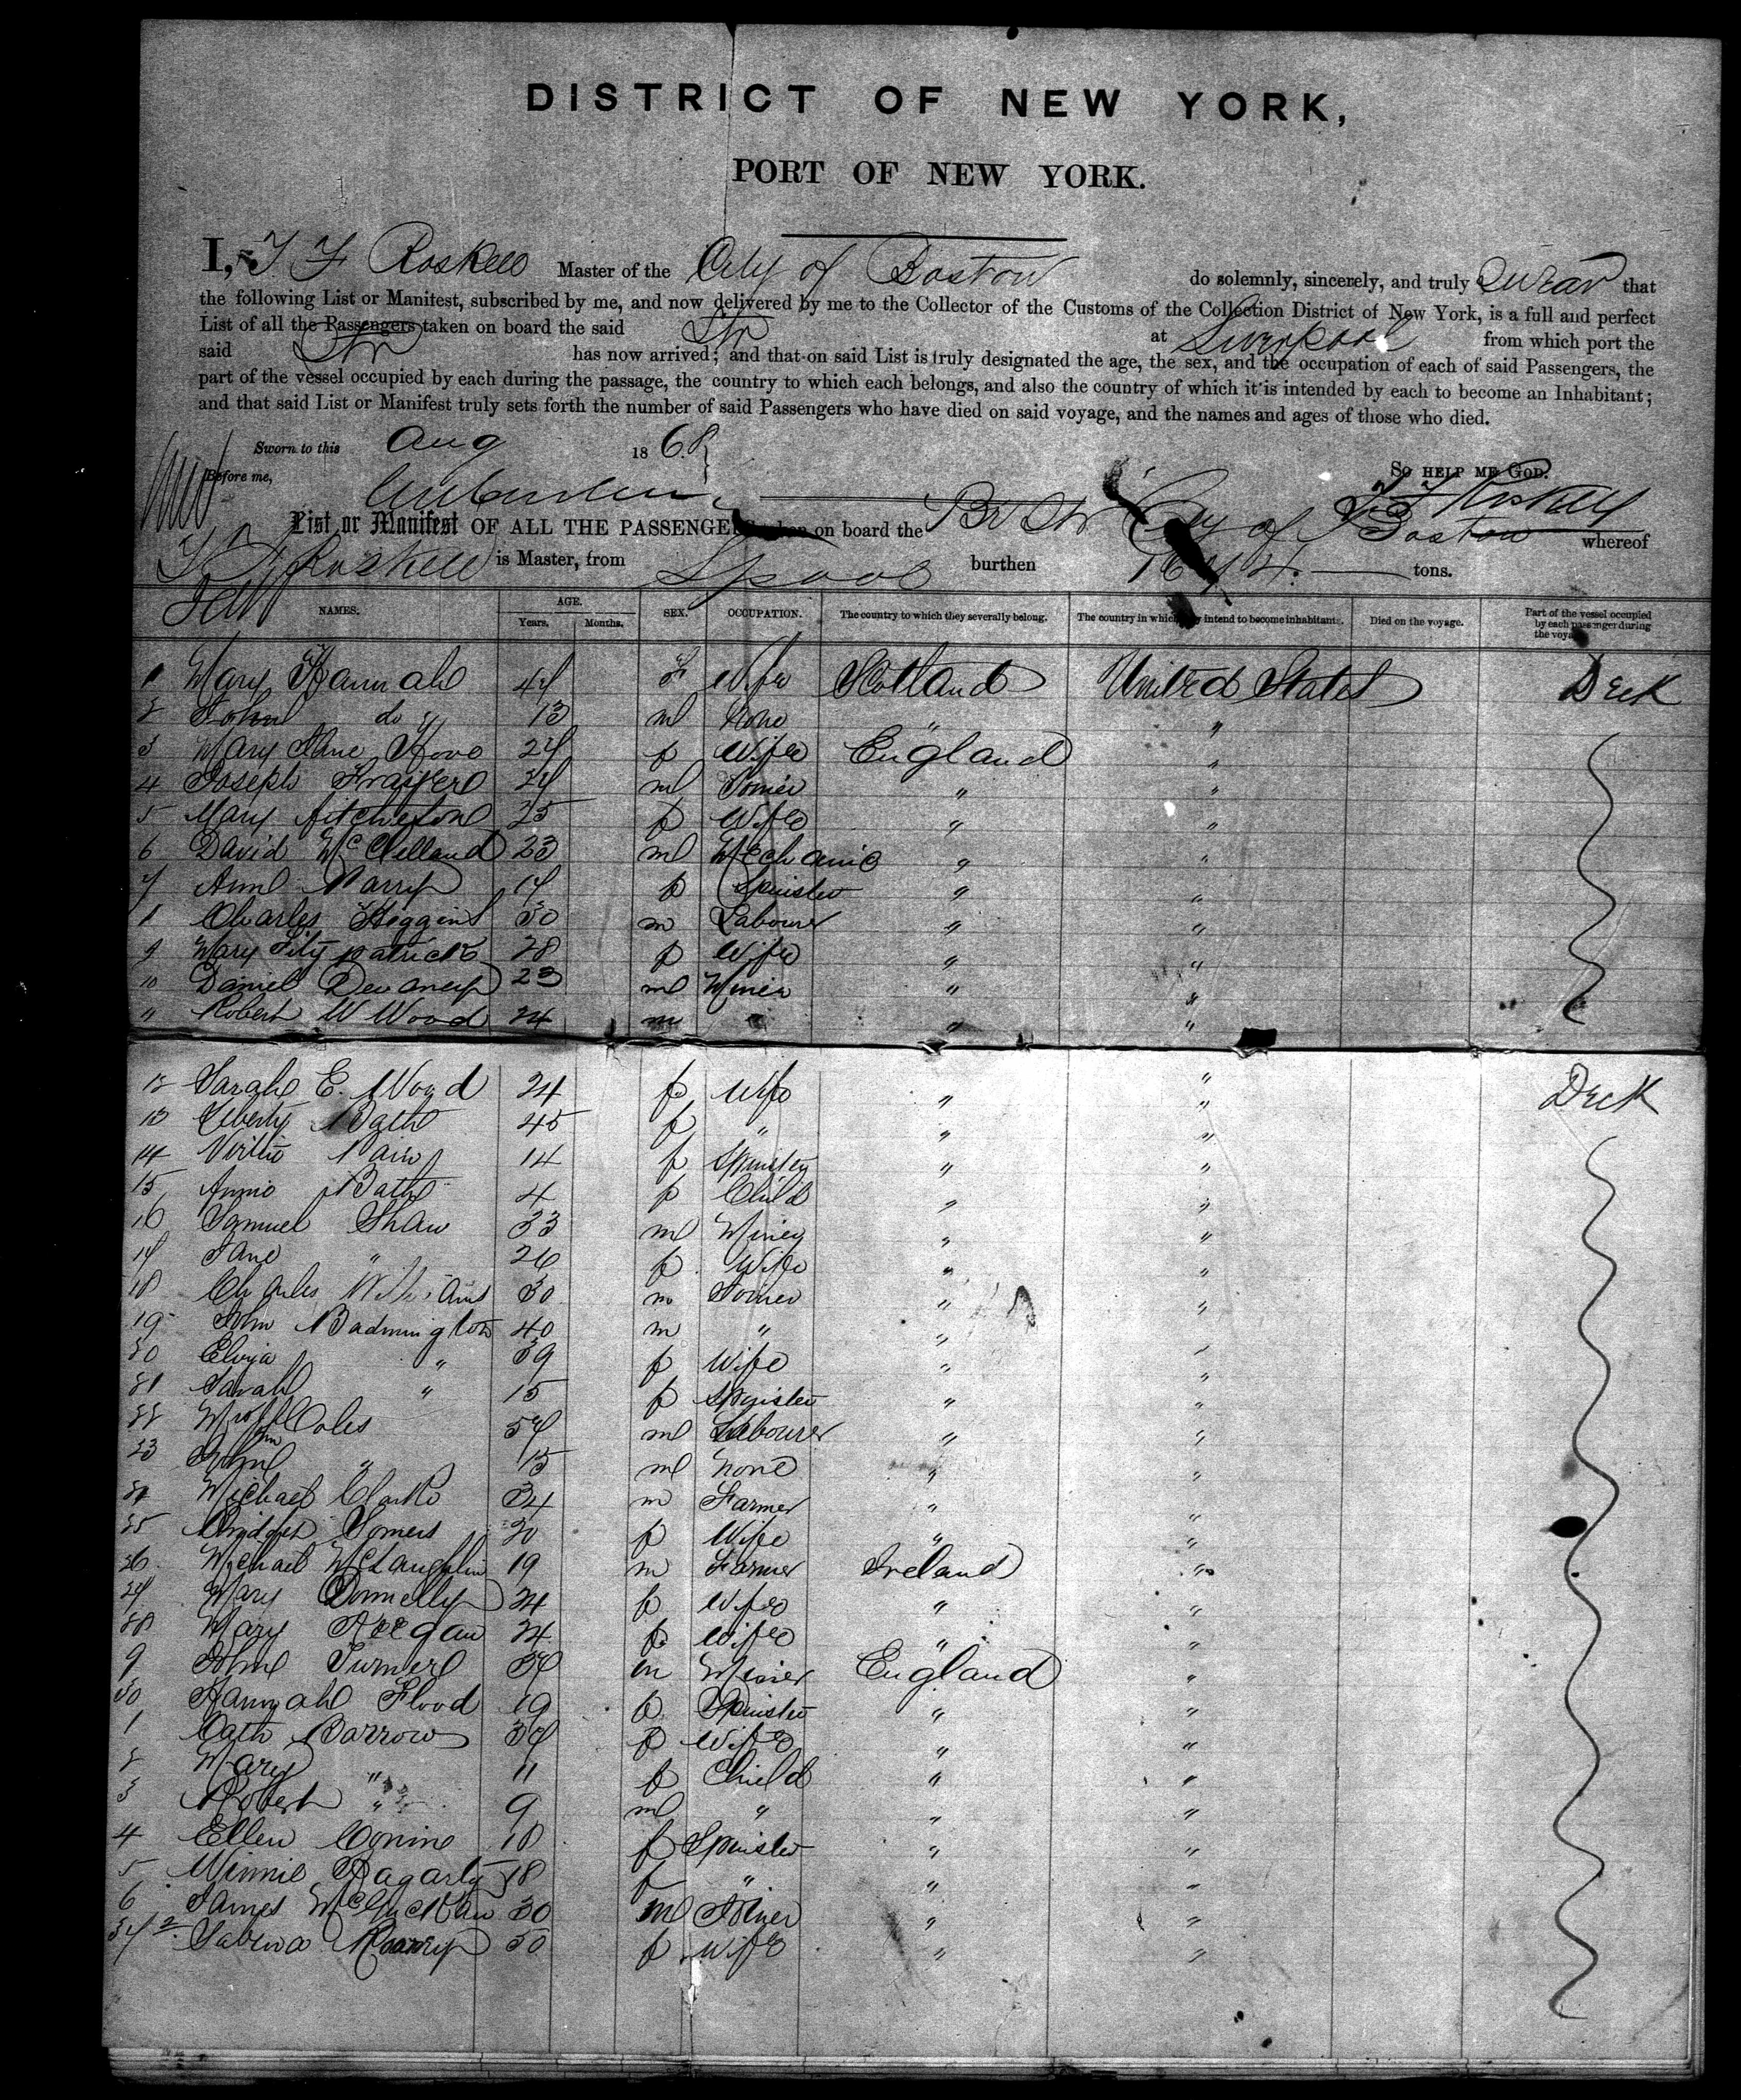 DISTRICT OF NEW YORK,
PORT OF NEW YORK.
I, T F Roskell Master of the City of Boston do solemnly, sincerely, and truly Swear that
the following List or Manifest, subscribed by me, and now delivered by me to the Collector of the Customs of the Collection District of New York, is a full and perfect
List of all the Passengers taken on board the said Str at Liverpool from which port the
said Str has now arrived; and that on said List is truly designated the age, the sex, and the occupation of each of said Passengers, the
part of the vessel occupied by each during the passage, the country to which each belongs, and also the country of which it is intended by each to become an Inhabitant;
and that said List or Manifest truly sets forth the number of said Passengers who have died on said voyage, and the names and ages of those who died.
Sworn to this Aug 1868
So HELP ME GOD.
Before me,
T F Roskell
List or Manifest OF ALL THE PASSENGERS taken on board the Br Str City of Boston whereof
T F Roskell is Master, from Lpool burthen tons.
NAMES. AGE. Years. Months. SEX. OCCUPATION. The country to which they severally belong. The country in which they intend to become inhabitants. Died on the voyage. Part of the vessel occupied by each passenger during the voyage
1 Mary Hannah 44 F Wife Scotland United States Deck
2 John do 13 m None " "
3 Mary Jane 24 f Wife England "
4 Joseph 24 m Joiner " "
5 Mary Aitchison 25 f Wife " "
6 David McClelland 23 m Mechanic " "
7 Ann 17 f Spinster " "
8 Charles Higgins 30 m Labourer " "
9 Mary Fitzpatrick 28 f Wife " "
10 Daniel Devaney 23 m Miner " "
" Robert W Wood 24 m " "
12 Sarah E. Wood 24 f Wife " " Deck
13 Bath 45 f " " "
14 14 f Spinster " "
15 Annie Bath 4 f Child " "
16 Samuel Shaw 33 m Miner " "
17 Jane " 26 f Wife " "
18 Charles Williams 30 m Joiner " "
19 John Badmington 40 m " " "
20 Eliza " 39 f Wife " "
21 Sarah " 15 f Spinster " "
22 Wm Coles 57 m Labourer " "
23 John " 15 m None " "
24 Michael Clarke 34 m Farmer " "
25 Bridget Somers 20 f Wife " "
26 Michael McLaughlin 19 m Farmer Ireland "
27 Mary Donnelly 24 f Wife " "
28 Mary Keegan 24 f Wife " "
9 John Turner 37 m Miner England "
30 Hannah Flood 19 f Spinster " "
1 Cath Barrow 37 f Wife " "
2 Mary " 11 f Child " "
3 Robert " 9 m " " "
4 Ellen 18 f Spinster " "
5 Winnie Hagarty 18 f " " "
6 James 30 m Joiner " "
37 Sabina 50 f Wife " "